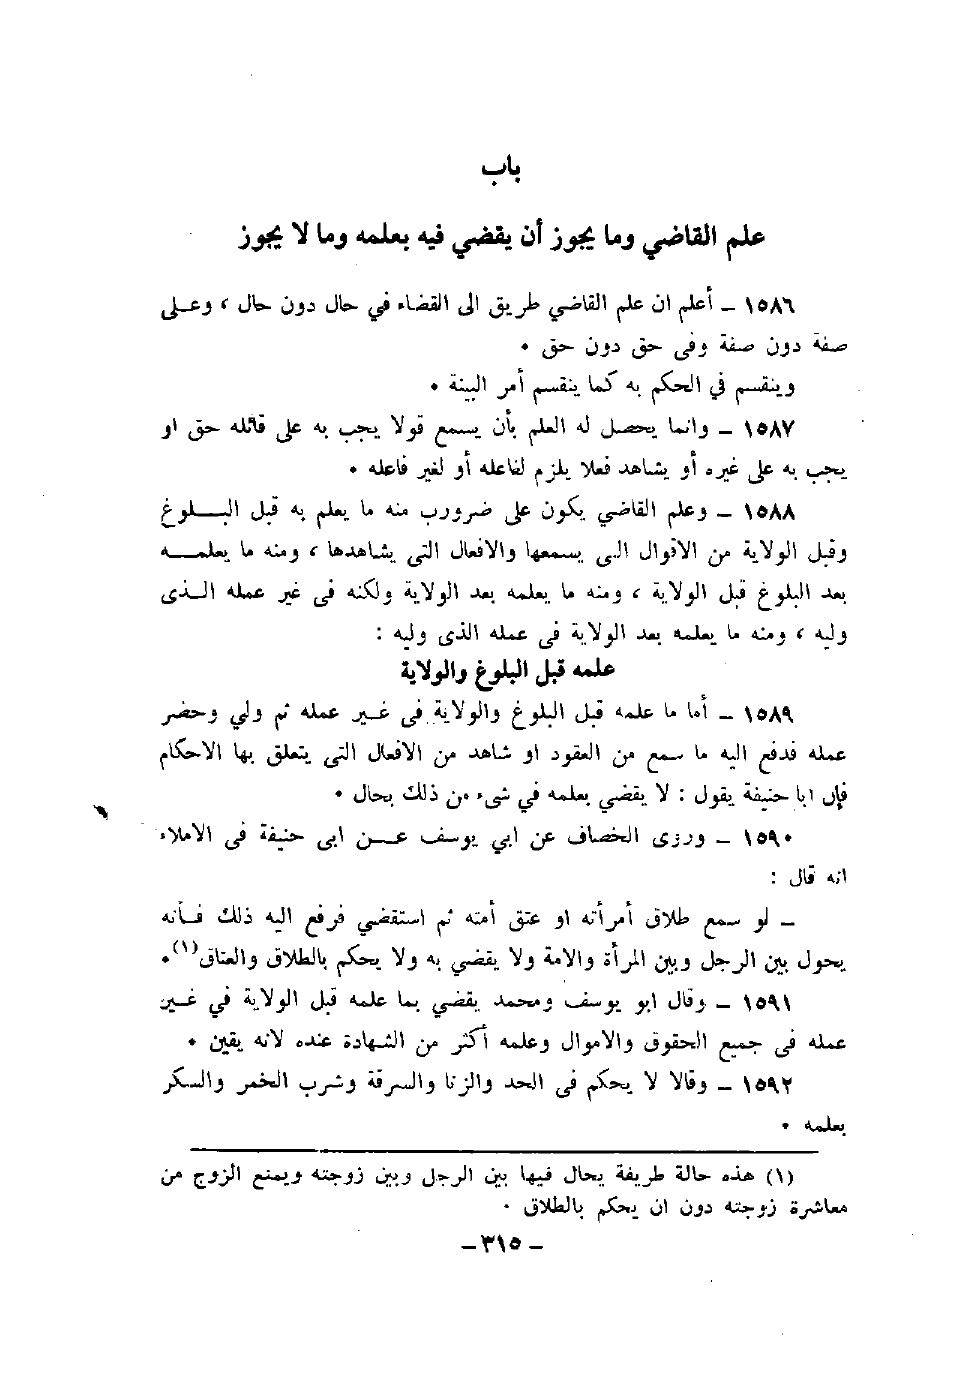 باب
علم القاضي وما يجوز أن يقضي فيه بعلمه وما لا يجوز
١٥٨٦ ــ أعلم ان علم القاضي طريق الى القضاء في حال دون حال ، وعلى
صفة دون صفة وفى حق دون حق .
وينقسم في الحكم به كما ينقسم أمر البينة .
١٥٨٧ ــ وانما يحصل له العلم بأن يسمع قولا يجب به على قائله حق او
يجب به على غيره أو يشاهد فعلا يلزم لفاعله أو لغير فاعله .
١٥٨٨ ــ وعلم القاضي يكون على ضرورب منه ما يعلم به قبل البلوغ
وقبل الولاية من الاقوال التى يسمعها والافعال التى يشاهدها ، ومنه ما يعلمه
بعد البلوغ قبل الولاية ، ومنه ما يعلمه بعد الولاية ولكنه فى غير عمله الذى
وليه ، ومنه ما يعلمه بعد الولاية فى عمله الذى وليه :
علمه قبل البلوغ والولاية
١٥٨٩ ــ أما ما علمه قبل البلوغ والولاية فى غير عمله ثم ولي وحضر
عمله فدفع اليه ما سمع من العقود او شاهد من الافعال التى يتعلق بها الاحكام
فإن ابا حنيفة يقول : لا يقضي بعلمه في شىء من ذلك بحال .
١٥٩٠ ــ وروى الخصاف عن ابي يوسف عن ابى حنيفة فى الاملاء
انه قال :
ــ لو سمع طلاق أمرأته او عتق أمته ثم استقضي فرفع اليه ذلك فأنه
يحول بين الرجل وبين المرأة والامة ولا يقضي به ولا يحكم بالطلاق والعتاق(١).
١٥٩١ ــ وقال ابو يوسف ومحمد يقضي بما علمه قبل الولاية في غير
عمله فى جميع الحقوق والاموال وعلمه أكثر من الشهادة عنده لانه يقين .
١٥٩٢ ــ وقالا لا يحكم فى الحد والزنا والسرقة وشرب الخمر والسكر
بعلمه .
(١) هذه حالة طريفة يحال فيها بين الرجل وبين زوجته ويمنع الزوج من
معاشرة زوجته دون ان يحكم بالطلاق .
ــ ٣١٥ ــ